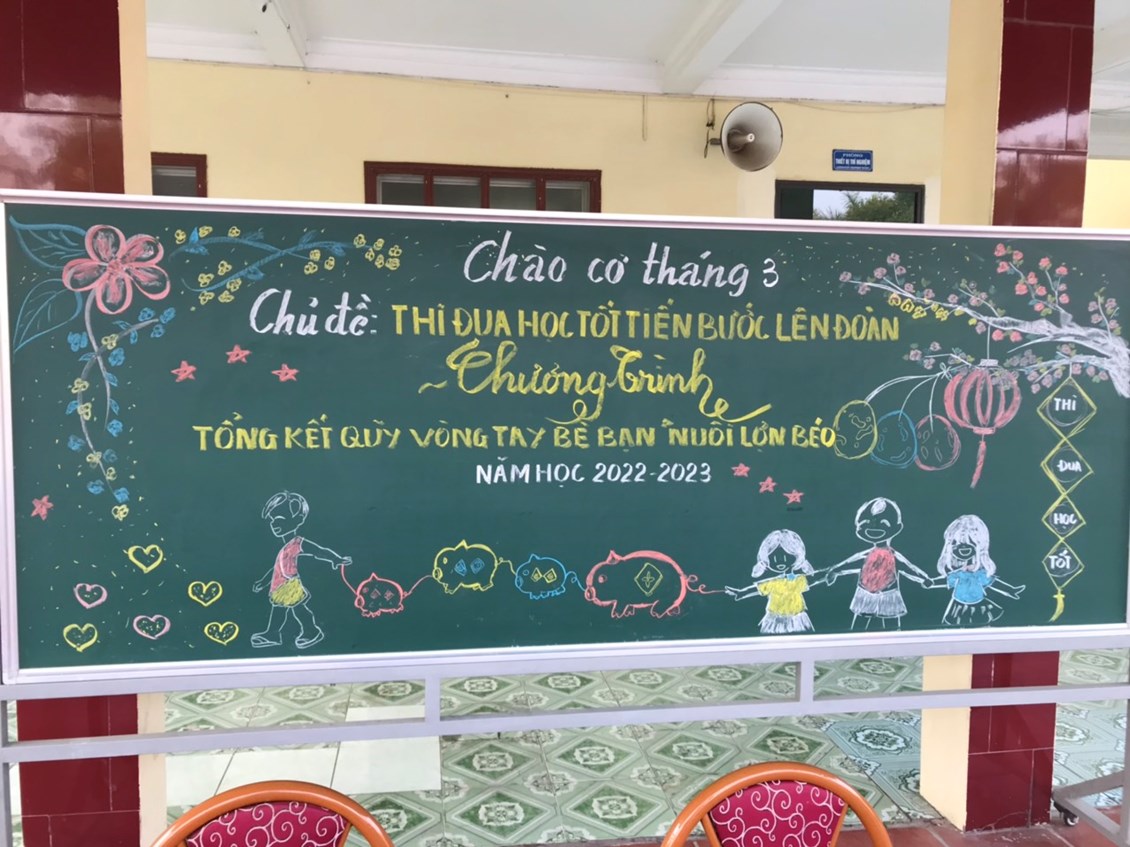 PHÒNG
THIẾT BỊ THÍ NGHIỆM
Chào cơ tháng 3
Chủ đề: THI ĐUA HỌC TỐT TIẾN BƯỚC LÊN ĐOÀN
~ Chương trình
TỔNG KẾT QUỸ VÒNG TAY BÈ BẠN "NUÔI LỢN BÉO
NĂM HỌC 2022-2023
THI
ĐUA
HỌC
TỐT